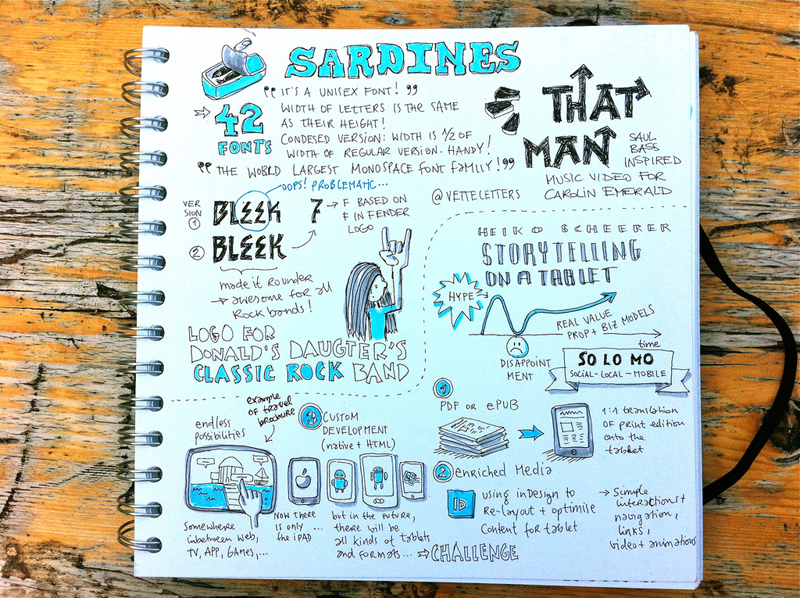 SARDINES
42
FONTS
"IT'S A UNISEX FONT!"
WIDTH OF LETTERS IS THE SAME
AS THEIR HEIGHT!
CONDESED VERSION: WIDTH IS 1/2 OF
WIDTH OF REGULAR VERSION. HANDY!
"THE WORLD LARGEST MONOSPACE FONT FAMILY!"
THAT
MAN
SAUL
BASS
INSPIRED
MUSIC VIDEO FOR
CAROLIN EMERALD
OOPS! PROBLEMATIC...
@VETTELETTERS
VER
SION
1
BLEEK
F
→ F BASED ON
F IN FENDER
LOGO
2
BLEEK
made it ROUNDER
→ awesome for all
Rock bands!
LOGO FOR
DONALD'S DAUGTER'S
CLASSIC ROCK BAND
HEIKO SCHERER
STORYTELLING
ON A TABLET
HYPE
REAL VALUE
PROP + BIZ MODELS
time
DISAPPOINT
MENT
SO LO MO
SOCIAL-LOCAL-MOBILE
1
PDF OR ePUB
1:1 translation
OF print edition
onto the
tablet
2 enriched Media
ID
using inDesign to
Re-layout + optimise
Content for tablet
→ Simple
interactions +
navigation,
links,
video + animations
endless
possibilities
example
of travel
brochure
3 CUSTOM
DEVELOPMENT
(native + HTML)
Somewhere
inbetween web,
TV, APP, GAMES,...
NOW THERE
IS ONLY ...
the iPAD
but in the future,
there will be
all kinds of tablets
and formats... ⇒ CHALLENGE